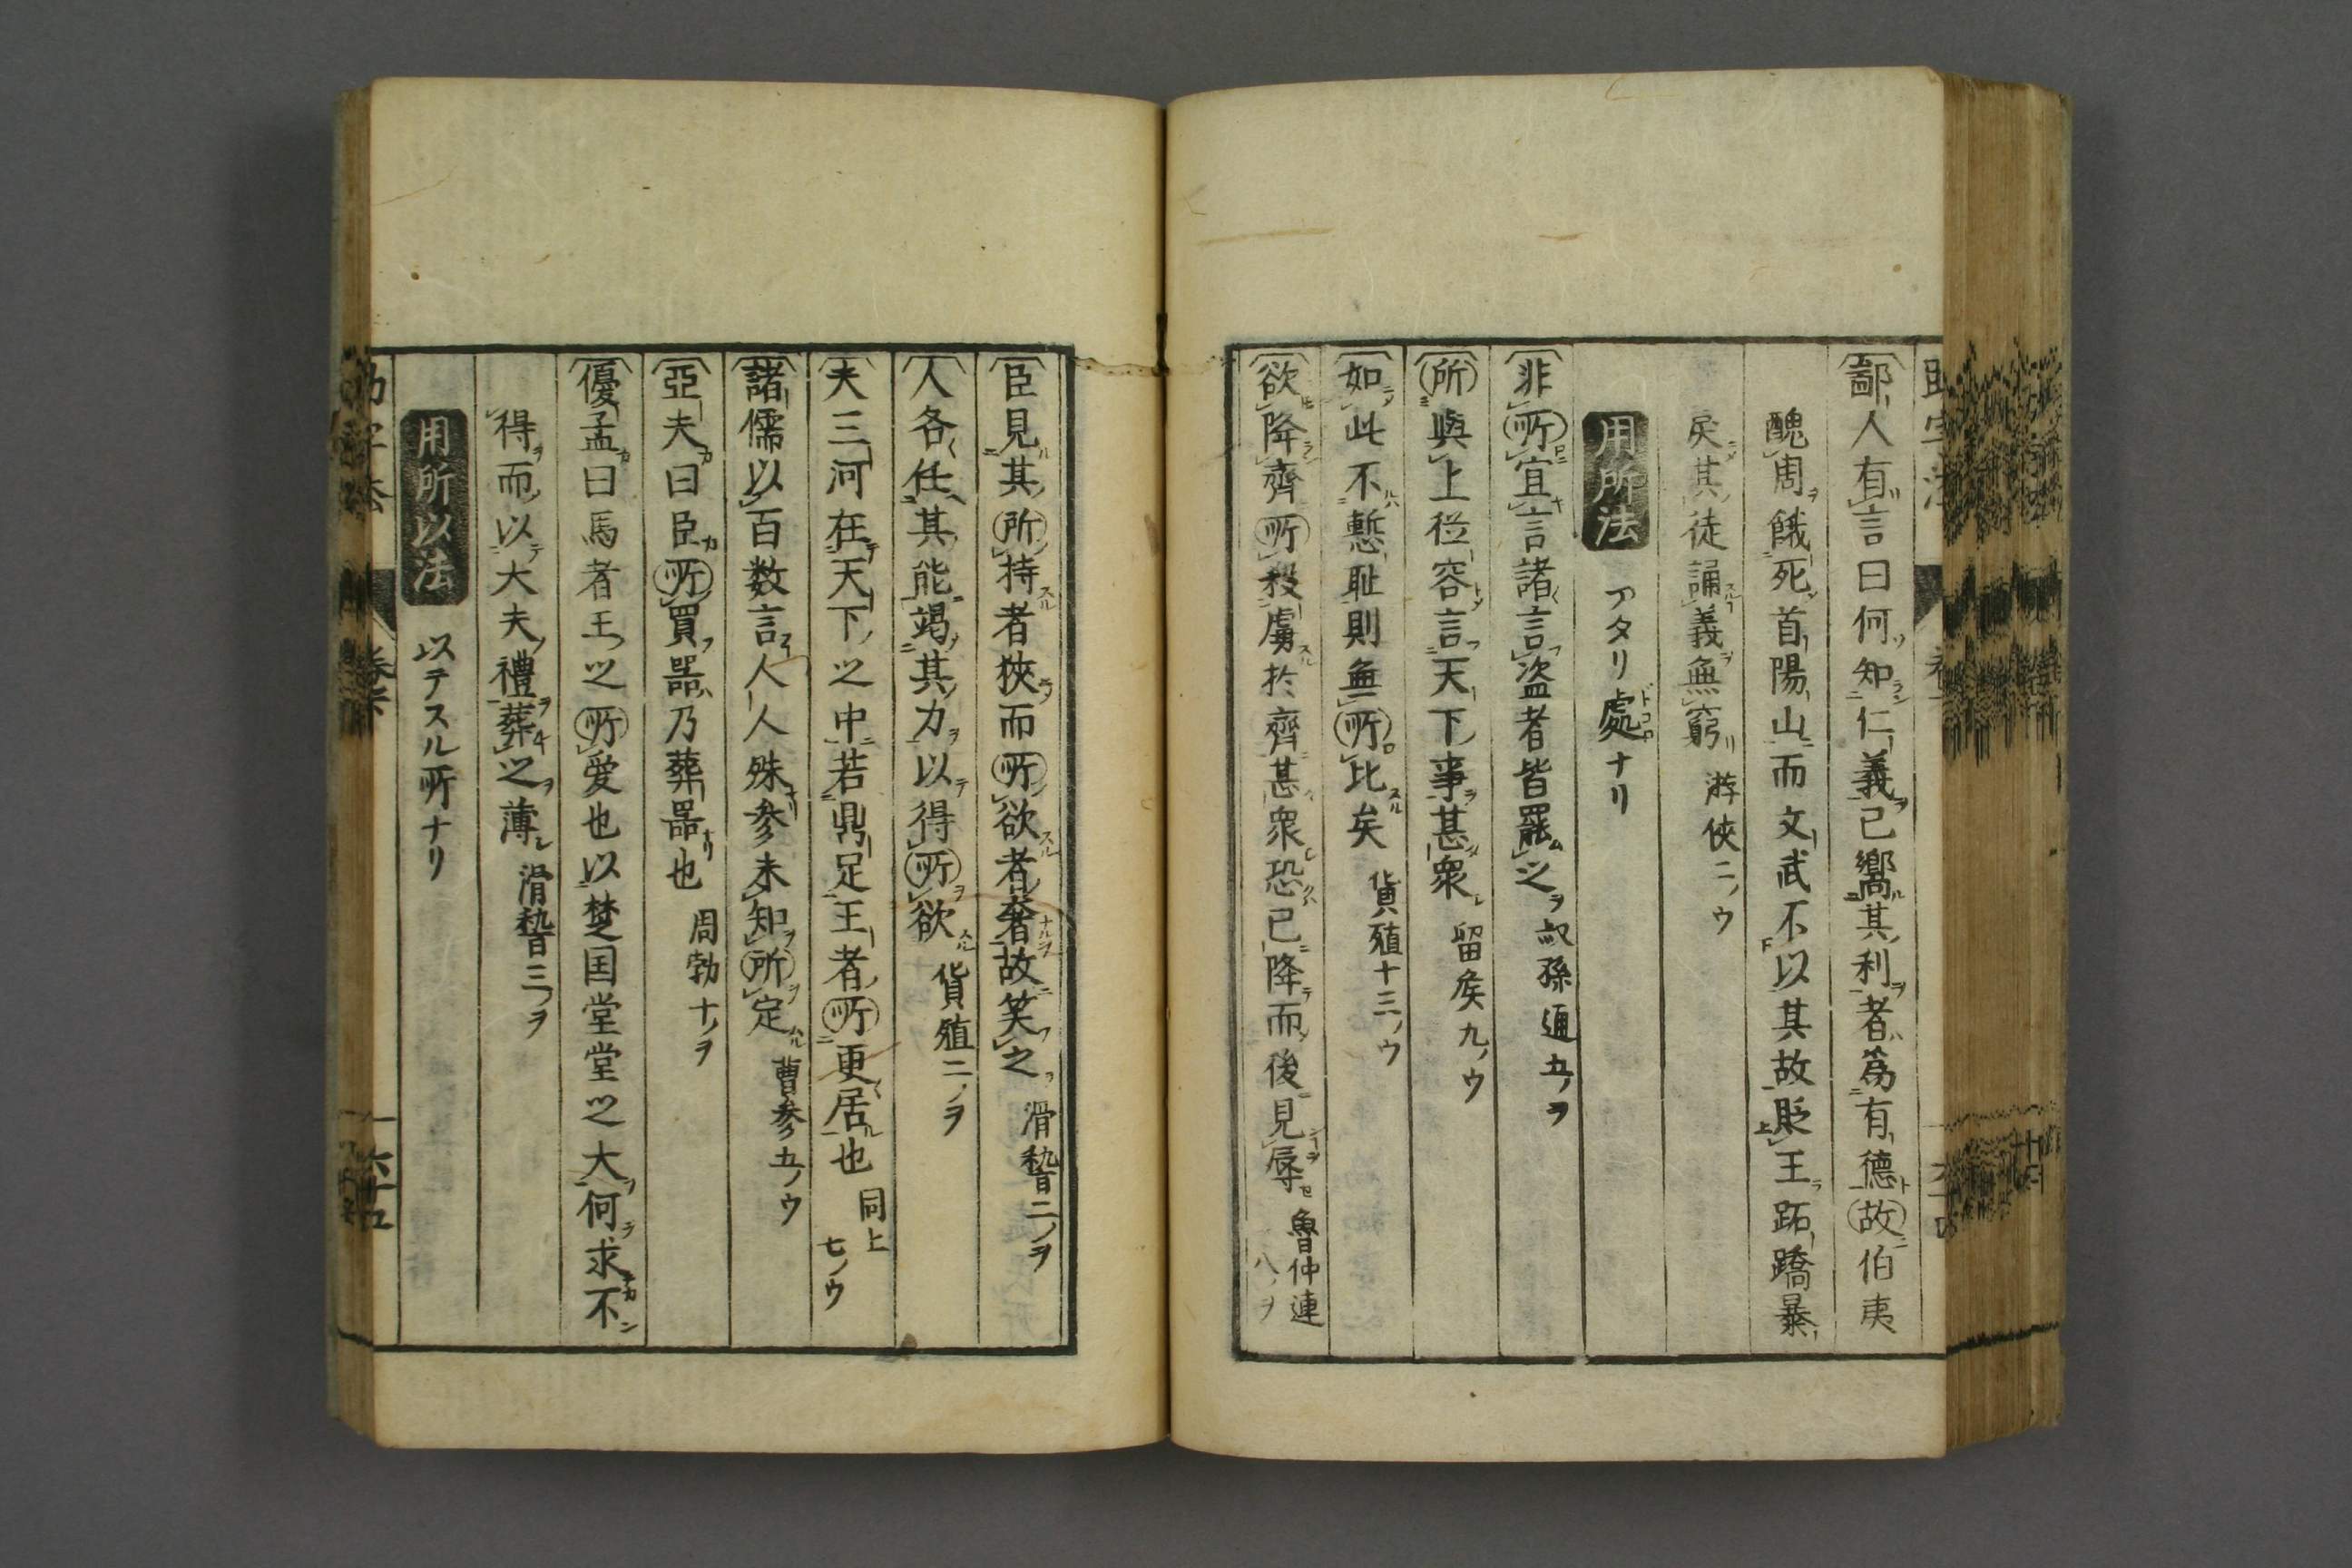 鄙人有言曰何知仁義已嚮其利者為有德故伯夷
醜周餓死首陽山而文武不以其故貶王跖蹻暴
戾其徒誦義無窮 游俠二ノウ
用所法 アタリ處ナリ
非所宜言諸言盗者皆罷之 叔孫通五ノヲ
所與上從容言天下事甚衆 留矦九ノウ
如此不慙耻則無所比矣 貨殖十三ノウ
欲降齊所殺虜於齊甚衆恐已降而後見辱 魯仲連八ノヲ
臣見其所持者狹而所欲者奢故笑之 滑稽二ノヲ
人各任其能竭其力以得所欲 貨殖二ノヲ
夫三河在天下之中若鼎足王者所更居也 同上七ノウ
諸儒以百数言人人殊参未知所定 曹参五ノウ
亞夫曰臣所買器乃葬器也 周勃十ノヲ
優孟曰馬者王之所愛也以楚国堂堂之大何求不
得而以大夫禮葬之薄 滑稽三ノヲ
用所以法 以テスル所ナリ